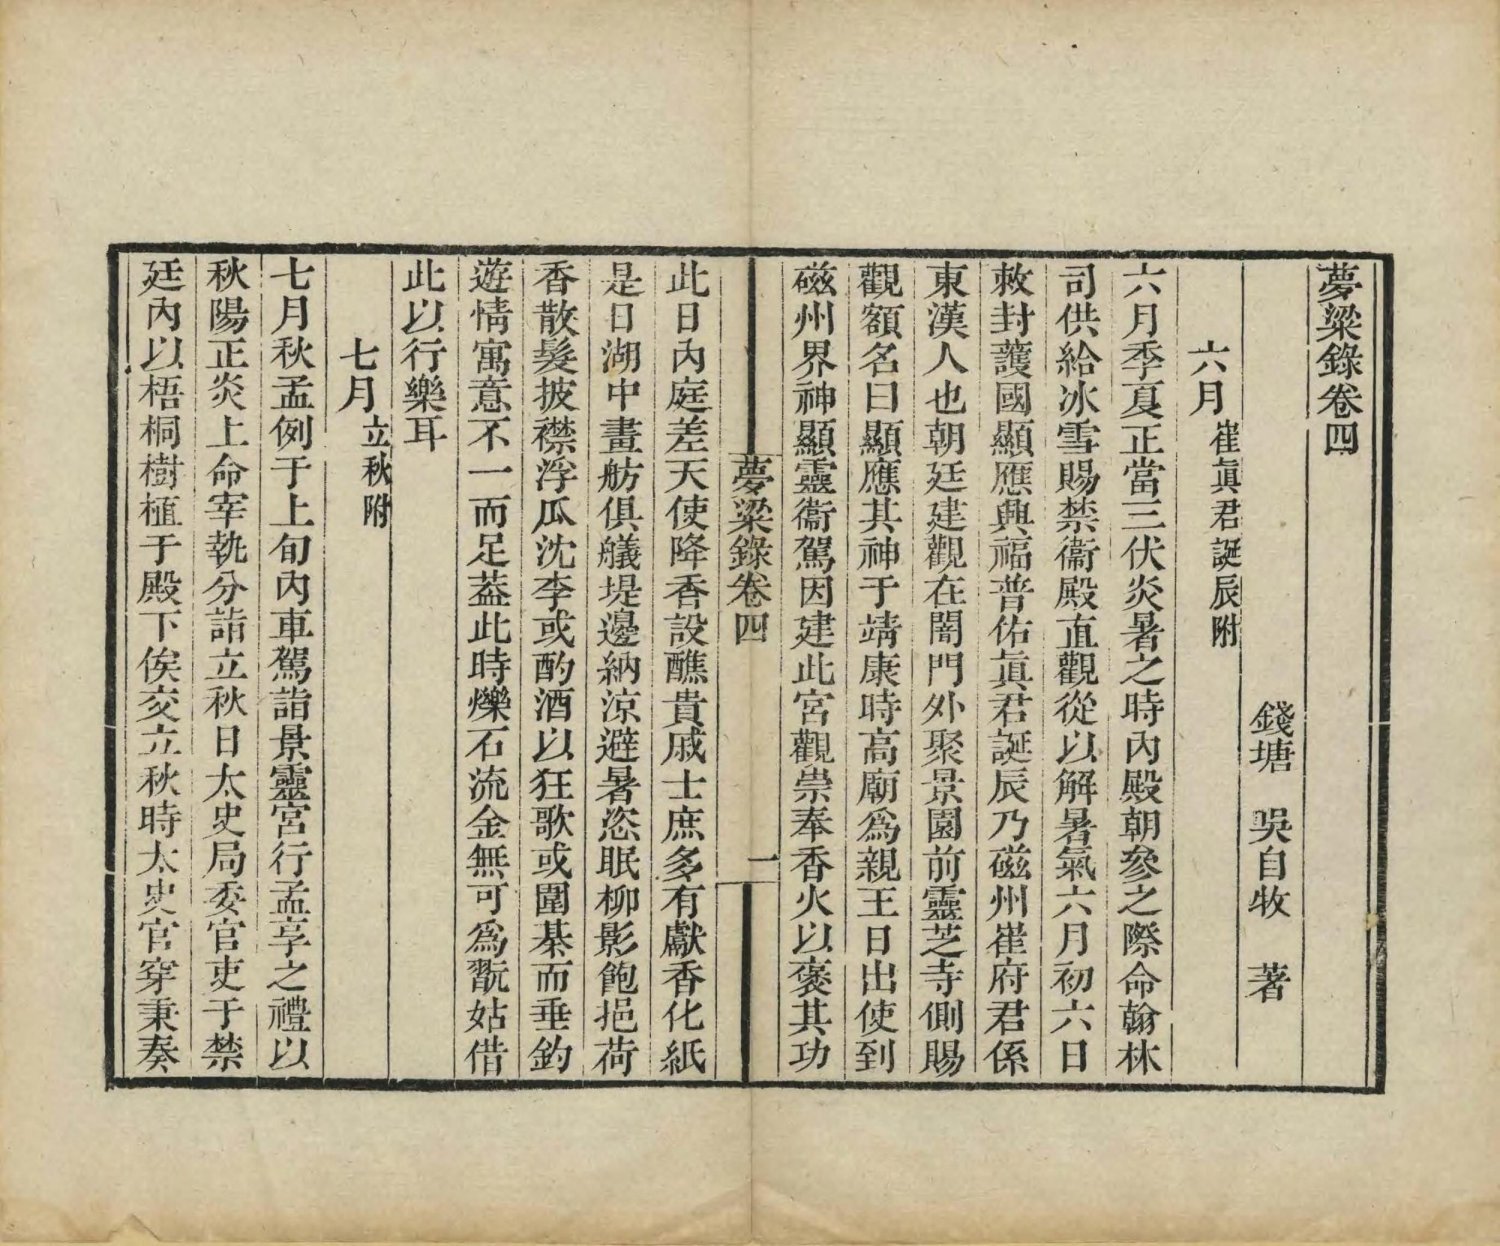 夢粱錄卷四
錢塘　吳自牧　著
六月　崔眞君誕辰附
六月季夏正當三伏炎暑之時內殿朝參之際命翰林
司供給冰雪賜禁衞殿直觀從以解暑氣六月初六日
敕封護國顯應興福普佑眞君誕辰乃磁州崔府君係
東漢人也朝廷建觀在闇門外聚景園前靈芝寺側賜
觀額名曰顯應其神于靖康時高廟爲親王日出使到
磁州界神顯靈衞駕因建此宮觀崇奉香火以褒其功
夢粱錄卷四
一
此日內庭差天使降香設醮貴戚士庶多有獻香化紙
是日湖中畫舫俱艤堤邊納涼避暑恣眠柳影飽挹荷
香散髮披襟浮瓜沈李或酌酒以狂歌或圍棊而垂釣
遊情寓意不一而足葢此時爍石流金無可爲翫姑借
此以行樂耳
七月　立秋附
七月秋孟例于上旬內車駕詣景靈宮行孟享之禮以
秋陽正炎上命宰執分詣立秋日太史局委官吏于禁
廷內以梧桐樹植于殿下俟交立秋時太史官穿秉奏